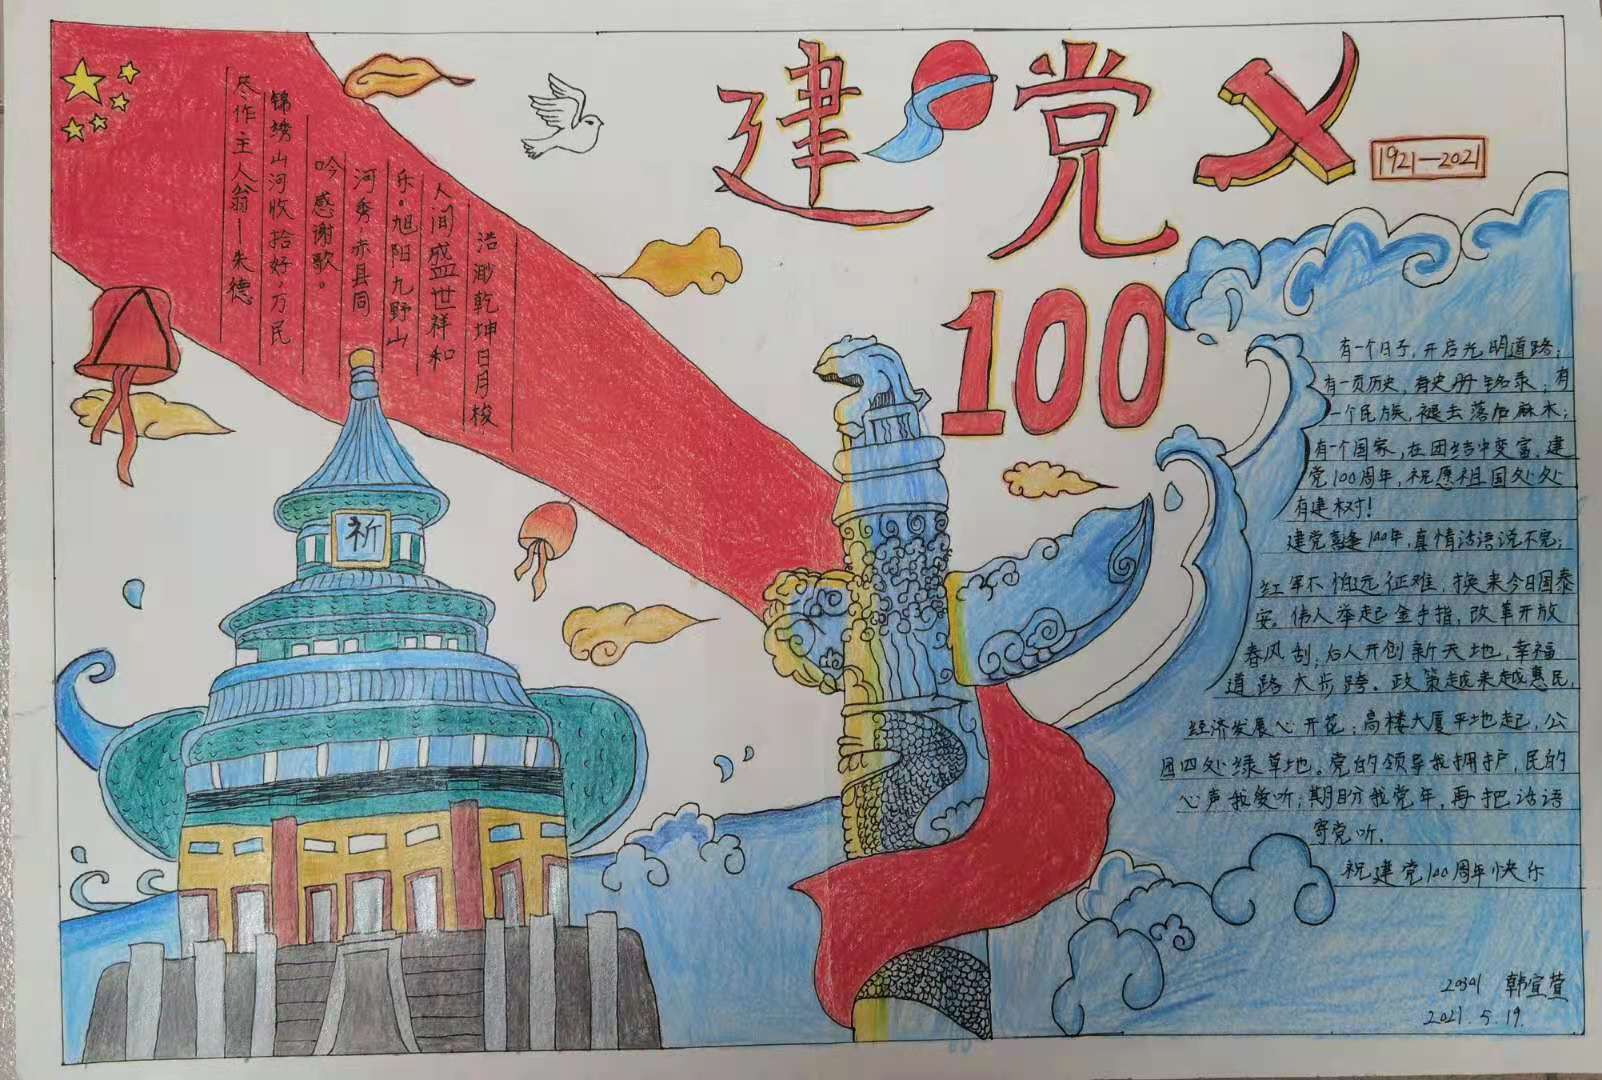 建党
100
1921—2021
浩渺乾坤日月梭
人间盛世祥和
乐。旭阳九野山
河秀，赤县同
吟感谢歌。
锦绣山河收拾好，万民
尽作主人翁—朱德
祈
有一个日子，开启光明道路；
有一页历史，有史册铭录；有
一个民族，褪去落后麻木；
有一个国家，在团结中变富，建
党100周年，祝愿祖国处处
有建树！
建党喜逢100年，真情话语说不完；
红军不怕远征难，换来今日国泰
安。伟人举起金手指，改革开放
春风刮；后人开创新天地，幸福
道路大步跨。政策越来越惠民，
经济发展心开花；高楼大厦平地起，公
园四处绿草地。党的领导我拥护，民的
心声我爱听；期盼我党年，再把话语
寄党听。
祝建党100周年快乐
20301 韩宣萱
2021.5.19.